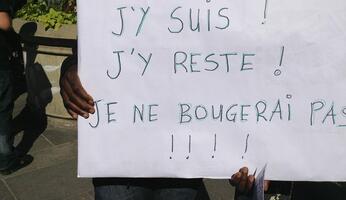 J'Y SUIS !
J'Y RESTE !
JE NE BOUGERAI PAS
! ! ! !